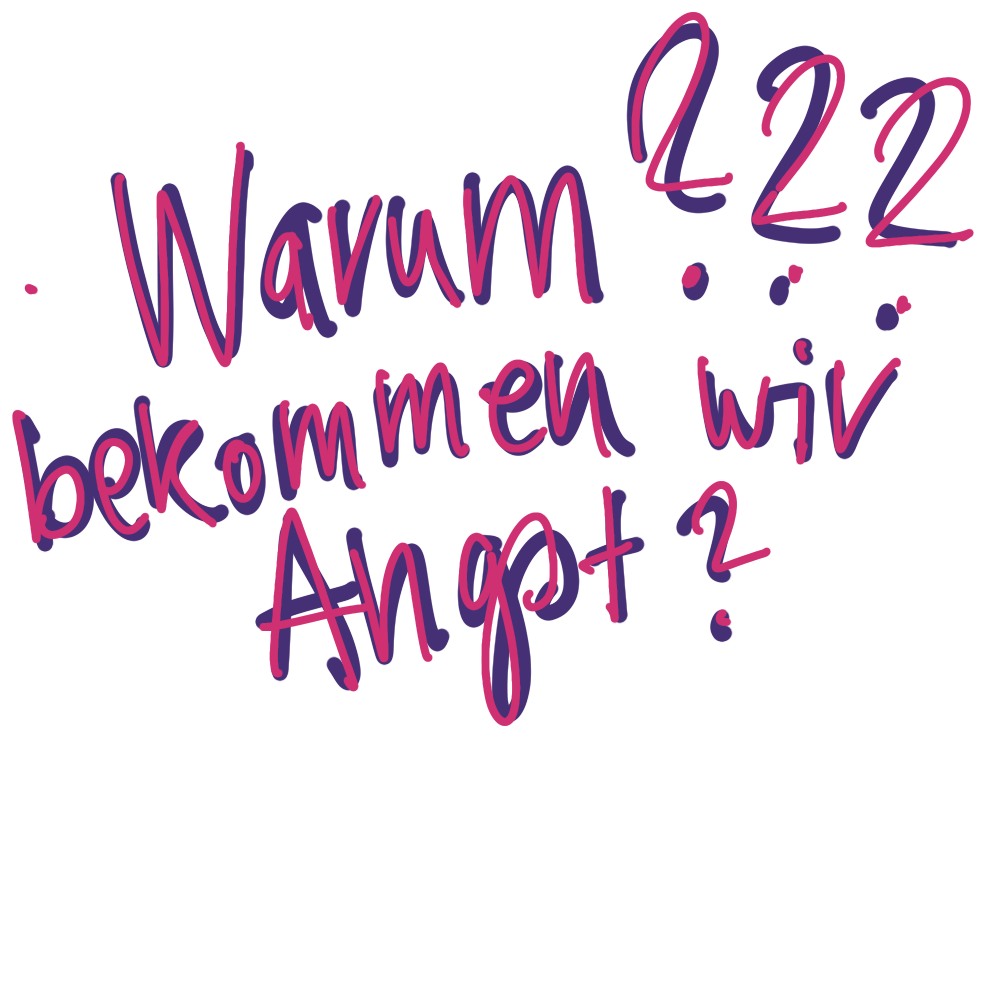 Warum ???
bekommen wir
Angst?